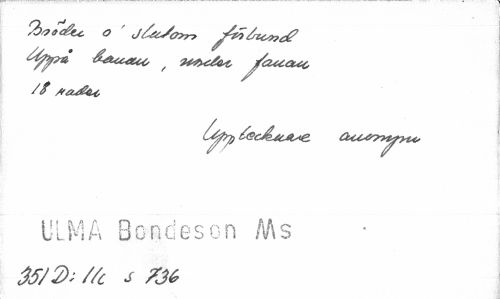 Bröder o' slutom förbund
Uppå banan, under fanan
18 rader
Upptecknare anonym
ULMA Bondeson Ms
351 D: 11c s 736